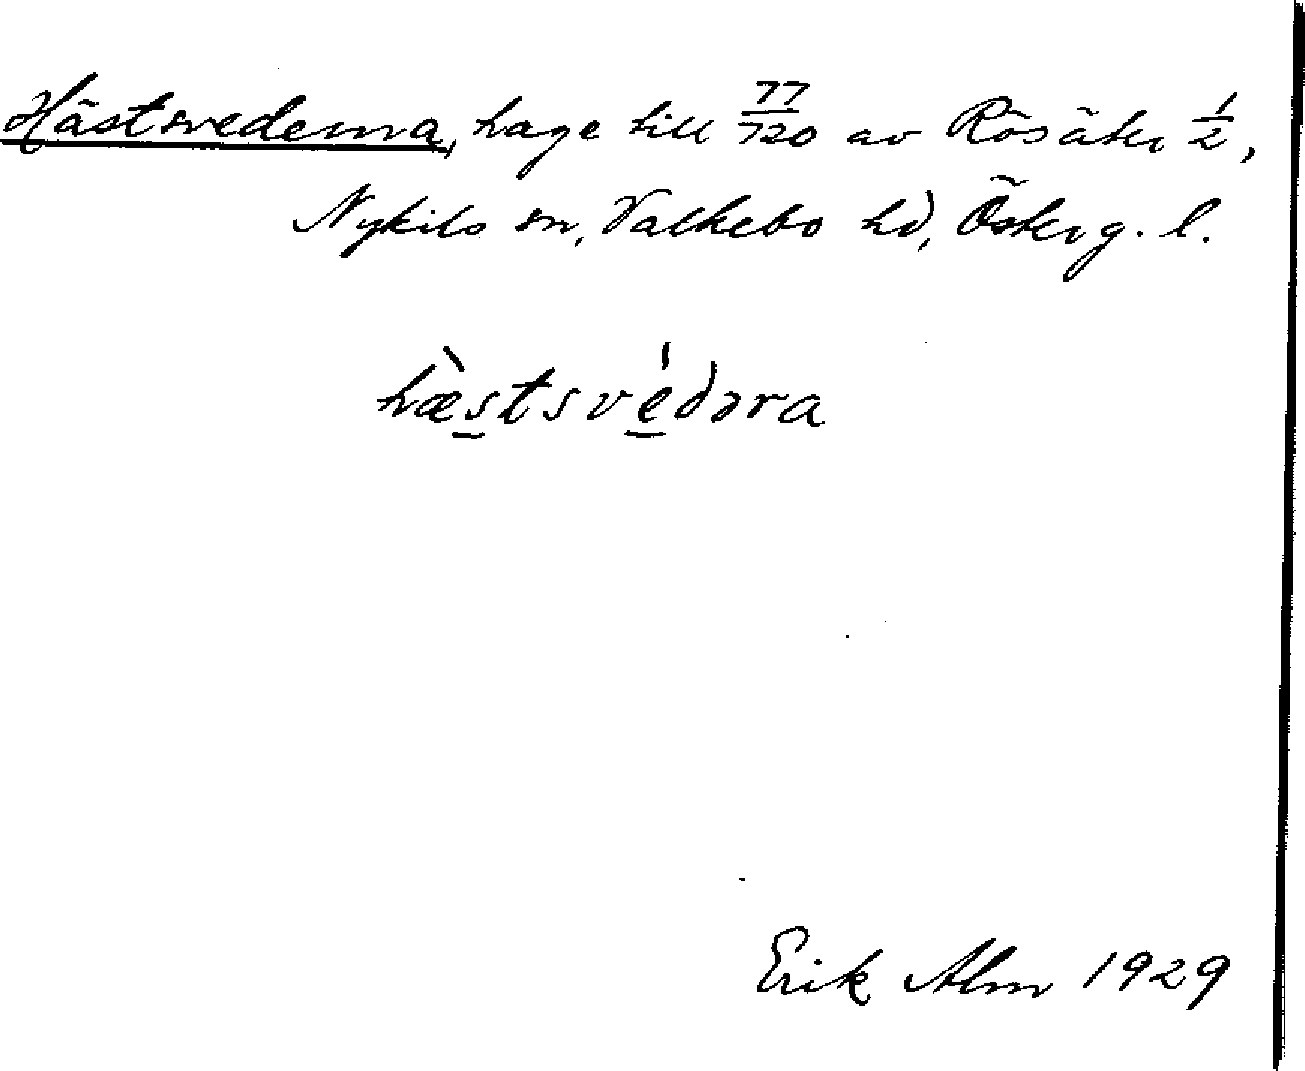 Hästsvederna, hage till 77/720 av Rösäter 1/2,
Nykils sn, Valkebo hd, Österg. l.
hæ̀stsvédəra
Erik Alm 1929